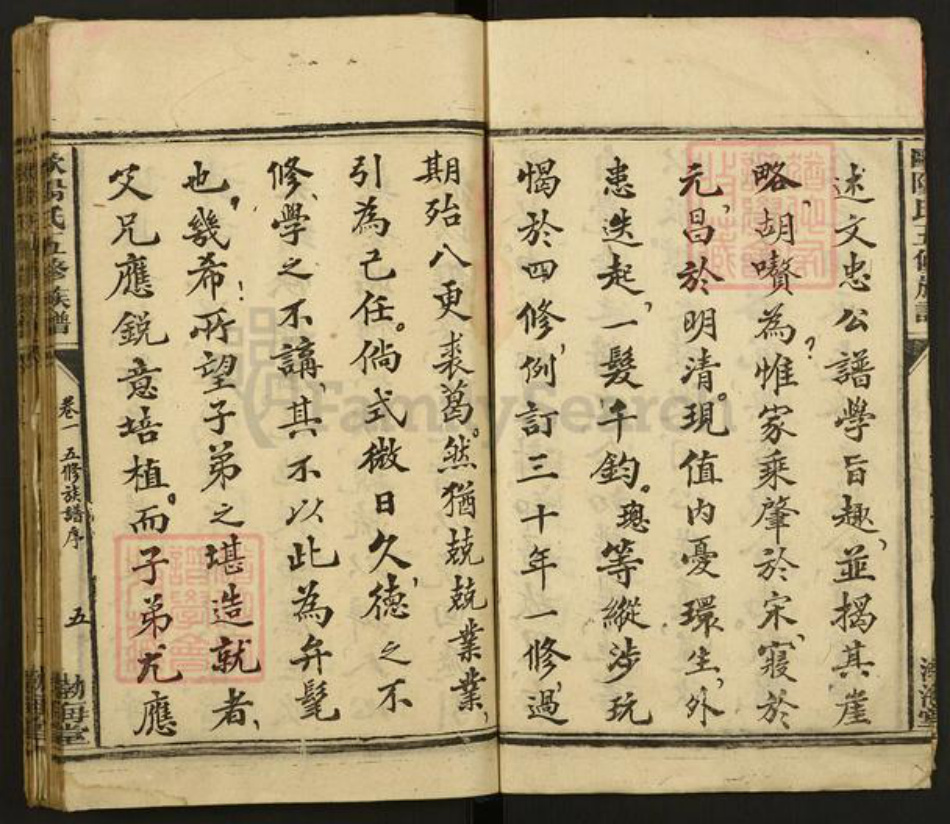 述文忠公譜學旨趣、並揭其崖
略、胡囋為？惟家乘肇於宋、寢於
元、昌於明清。現值內憂環生、外
患迭起、一髮千鈞。璁等縱涉玩
愒於四修、例訂三十年一修、過
期殆八更裘葛。然猶兢兢業業、
引為己任。倘式微日久、德之不
修、學之不講、其不以此為弁髦
也、幾希！所望子弟之堪造就者、
父兄應銳意培植。而子弟尤應
歐陽氏五修族譜
卷一 五修族譜序
五
渤海堂
FamilySearch